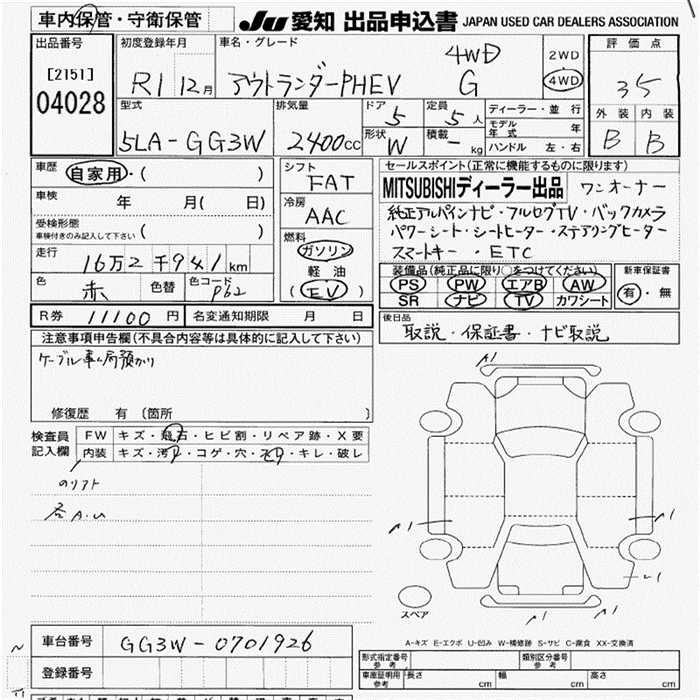 車内保管・守衛保管 JU 愛知 出品申込書 JAPAN USED CAR DEALERS ASSOCIATION
出品番号 [2151] 04028
初度登録年月 R1 12月
車名・グレード アウトランダーPHEV 4WD G
2WD 4WD
評価点 35
外装 B 内装 B
型式 5LA-GG3W
排気量 2400cc
ドア 5 形状 W
定員 5人 積載 - kg
ディーラー・並行
モデル年式 年
ハンドル 左・右
車歴 自家用・( )
車検 年 月( 日)
受検形態 ( )
車検付きのみ記入して下さい
走行 16万2千941km
色 赤 色替 色コード P62
シフト FAT
冷房 AAC
燃料 ガソリン
軽油
(EV)
セールスポイント(正常に機能するものに限ります)
MITSUBISHIディーラー出品 ワンオーナー
純正アルパインナビ・フルセグTV・バックカメラ
パワーシート・シートヒーター・ステアリングヒーター
スマートキー・ETC
装備品(純正品に限り○をつけてください)
PS PW エアB AW
SR ナビ TV カワシート
新車保証書
有・無
R券 11100円 名変通知期限 月 日
後日品 取説・保証書・ナビ取説
注意事項申告欄(不具合内容等は具体的に記入して下さい)
修復歴 有 〔箇所 〕
検査員記入欄
FW キズ・飛石・ヒビ割・リペア跡・X要
内装 キズ・汚れ・コゲ・穴・スレ・キレ・破レ
A1
A1
A1
A1
A1
スペア
A-キズ E-エクボ U-凹み W-補修跡 S-サビ C-腐食 XX-交換済
車台番号 GG3W-0701926
登録番号
形式指定番号 参考
類別区分番号 参考
車庫証明用 参考 長さ cm 幅 cm 高さ cm